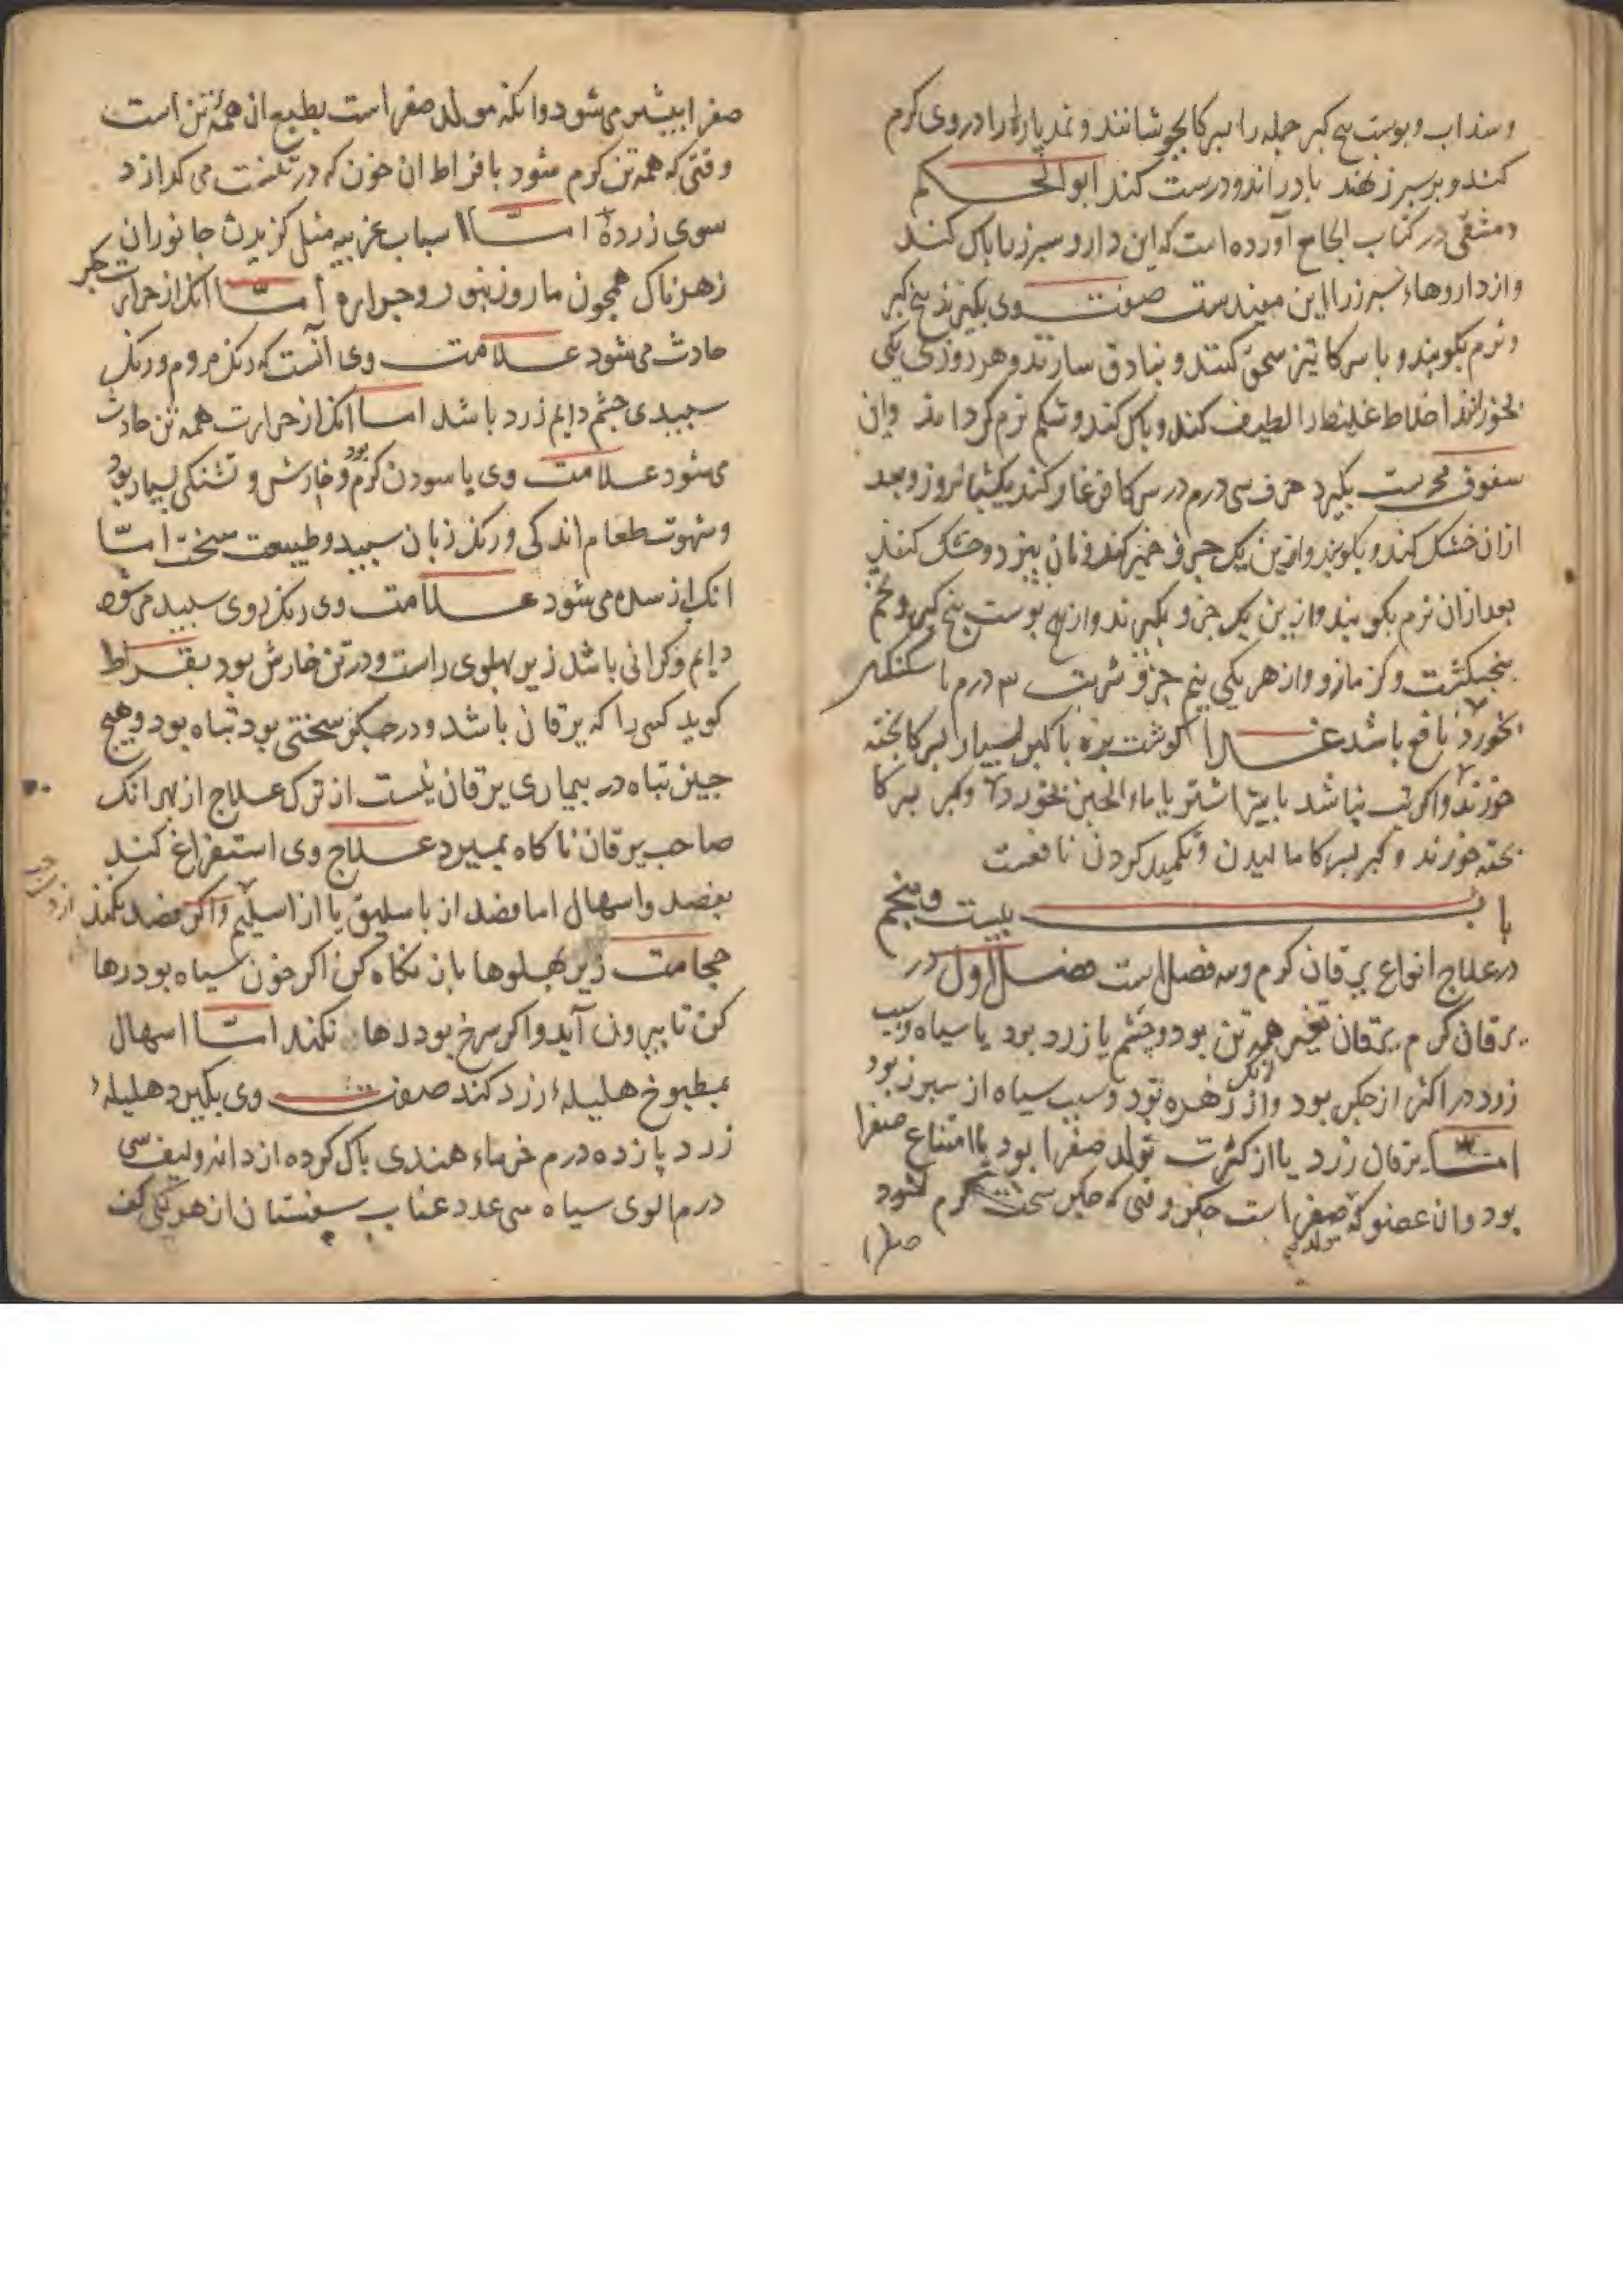 وسنداب و بوست بیخ کبر جمله را بسرکا بجوشانند و نمد پاره را در وی کرم
کنند و بر سبرز نهند باد براند و درست کند ابو الحکم
دمشقی در کتاب الجامع آورده است که این دارو سبرز را باک کند
و از داروهاء سبرز را این مفیدست صفت وی بکیرند بیخ کبر
و نرم بکوبند و با سرکا تیز سحق کنند و بنادق سازند و هر روزی یکی
بخورانند اخلاط غلیظ را لطیف کند و باک کند و شکم نرم کرداند و این
سفوف مجربست بکیرد حرف سی درم در سرکا فرغار کند یکشبانروز و بعد
ازان خشک کند و بکوبند و ازین یک جزو خمیر کند و نان بپزد و خشک کنند
بعد ازان نرم بکوبند و ازین یک جزو بکیرند و از بوست بیخ کبر و تخم
بنجنکشت و کزمازو و از هر یکی نیم جزو شربت ۳ درم با سکنکبین
بخورد نافع باشد غذا کوشت بزه با کبر بسیار بسرکا بخته
خورند و اکر تب نباشد با شیر اشتر یا ماء الجبن بخورد و کبر بسرکا
بخته خورند و کبر بسرکا مالیدن و تکمید کردن نافعست
باب بیست و پنجم
در علاج انواع یرقان کرم و سه فصل است فصل اول در
یرقان کرم یرقان تغیر همه تن بود و چشم یا زرد بود یا سیاه و سبب
زرد در اکثر از جکر بود و از زهره بود و سبب سیاه از سبرز بود
اما یرقان زرد یا از کثرت تولد صفرا بود یا امتناع صفرا
بود و ان عضو که مولد صفرا است جکر و قتی که جکر سخت کرم شود
صفرا
صفرا بیشتر می شود و انکه مولد صفرا است بطبع ان همه تن است
وقتی که همه تن کرم شود بافراط ان خون که در تنست می کدازد
سوی زرده اما اسباب غریبه مثل کزیدن جانوران
زهرناک همجون مار و زنبور و جراره اما انک از حرارت جکر
حادث می شود علامت وی آنست که رنک مردم و رنک
سبیدی جشم دایم زرد باشد اما انک از حرارت همه تن حادث
می شود علامت وی پاسودن کرم بود و خارش و تشنکی بسیار بود
و شهوت طعام اندکی و رنک زبان سبید و طبیعت سخت اما
انک از سده می شود علامت وی رنک روی سبید می شود
دایم و کرانی باشد زیر بهلوی راست و در تن خارش بود بقراط
کوید کسی را که یرقان باشد و در جکر سختی بود تباه بود و هیچ
جیز تباه در بیماری یرقان نیست از ترک علاج از بهر انک
صاحب یرقان ناکاه بمیرد علاج وی استفراغ کند
بفصد و اسهال اما فصد از باسلیق یا از اسیلم و اکر فصد نکند از دست
حجامت زیر بهلوها بان نکاه کن اکر خون سیاه بود رها
کن تا بیرون آید و اکر سرخ بود رها نکند اما اسهال
بمطبوخ هلیلهٔ زرد کند صفت وی بکیرد هلیلهٔ
زرد پازده درم خرماء هندی باک کرده از دانه و لیف سی
درم الوی سیاه سی عدد عناب سبستان از هر یکی کف